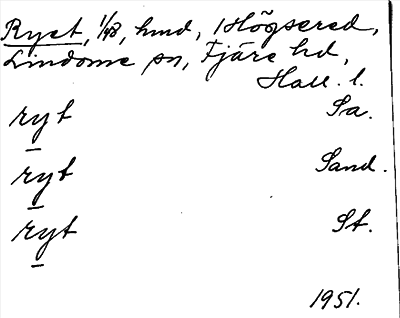 Ryet, 1/48, hmd, 1 Högsered,
Lindome sn, Fjäre hd,
Hall. l.
ryt Sa.
ryt Sand.
ryt St.
1951.